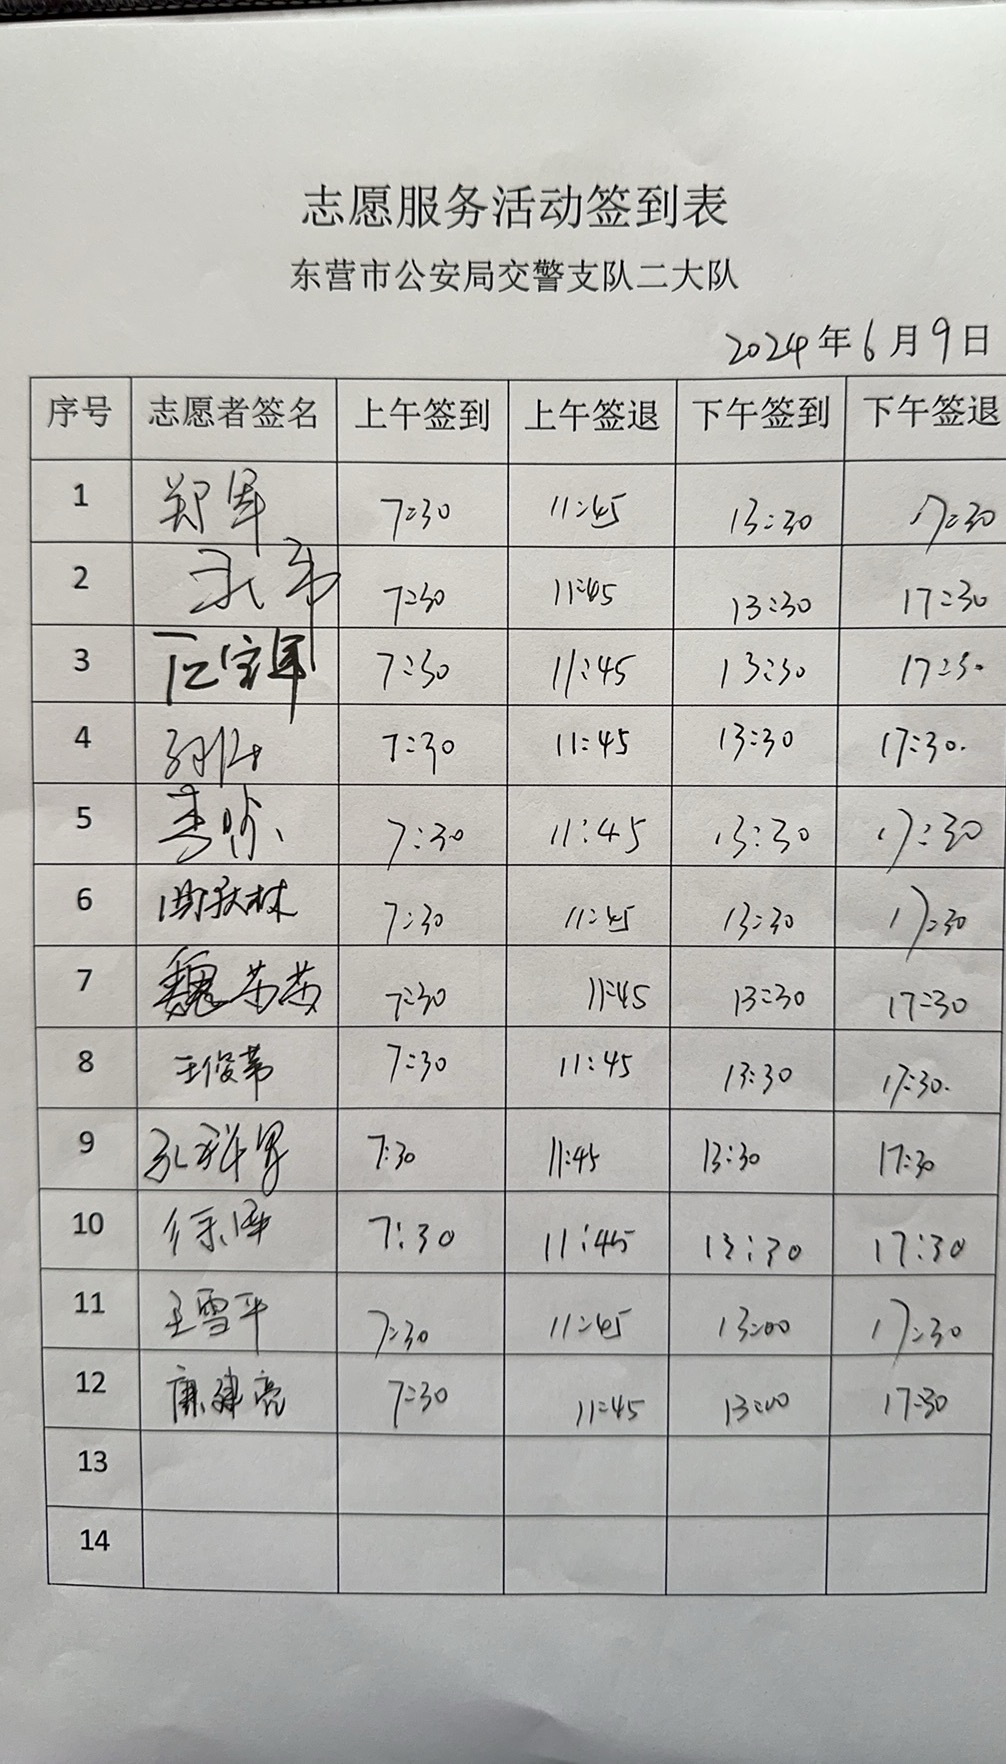 志愿服务活动签到表
东营市公安局交警支队二大队
2024年6月9日
序号 志愿者签名 上午签到 上午签退 下午签到 下午签退
1 郑军 7:30 11:45 13:30 17:30
2 7:30 11:45 13:30 17:30
3 7:30 11:45 13:30 17:30
4 7:30 11:45 13:30 17:30.
5 7:30 11:45 13:30 17:30
6 7:30 11:45 13:30 17:30
7 魏茜茜 7:30 11:45 13:30 17:30
8 7:30 11:45 13:30 17:30.
9 7:30 11:45 13:30 17:30
10 7:30 11:45 13:30 17:30
11 王雪平 7:30 11:45 13:00 17:30
12 康建亮 7:30 11:45 13:00 17:30
13
14